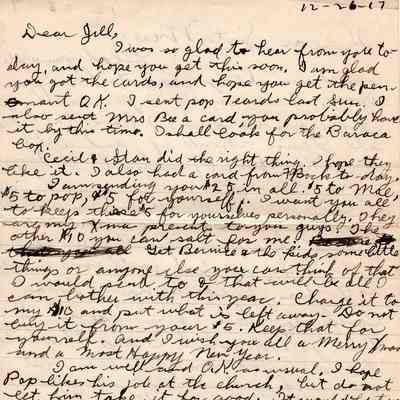 12-26-17
Dear Jill,
I was so glad to hear from you to-
day, and hope you get this soon. I am glad
you got the cards, and hope you get the pen-
nant O.K. I sent pop 7 cards last Sun. I
also sent Mrs Bee a card, you probably have
it by this time. I shall look for the Baraca
box.
Cecil & Stan did the right thing. I hope they
like it. I also had a card from to-day.
I am sending you $25 in all. $5 to Mae,
$5 to pop, $5 for yourself. I want you all
to keep these $5 for yourselves personally. They
are my Xmas present to you guys. The
other $10 you can salt for me.
Get Bernice & the kids some little
things or anyone else you can think of that
I would send to & that will be all I
can bother with this year. Charge it to
my $10 and put what is left away. Do not
buy it from your $5. Keep that for
yourself. And I wish you all a Merry Xmas
and a most Happy New Year.
I am well and O.K. as usual, I hope
Pop likes his job at the church, but do not
let him take it for good. It